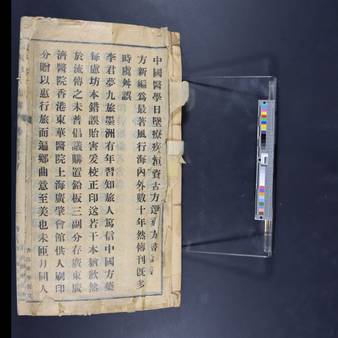 中國醫學日墜療疾恒資古方
方新編爲最著風行海內外數十年然傳刊旣多
時虞舛誤
李君夢九旅墨洲有年習知旅人篤信中國方藥
每慮坊本錯誤貽害爰校正印送若干本猶歉然
於流傳之未普倡議購置鉛板三副分存廣東廣
濟醫院香港東華醫院上海廣肇會館供人刷印
分贈以惠行旅而遍鄉曲意至美也未匝月同人